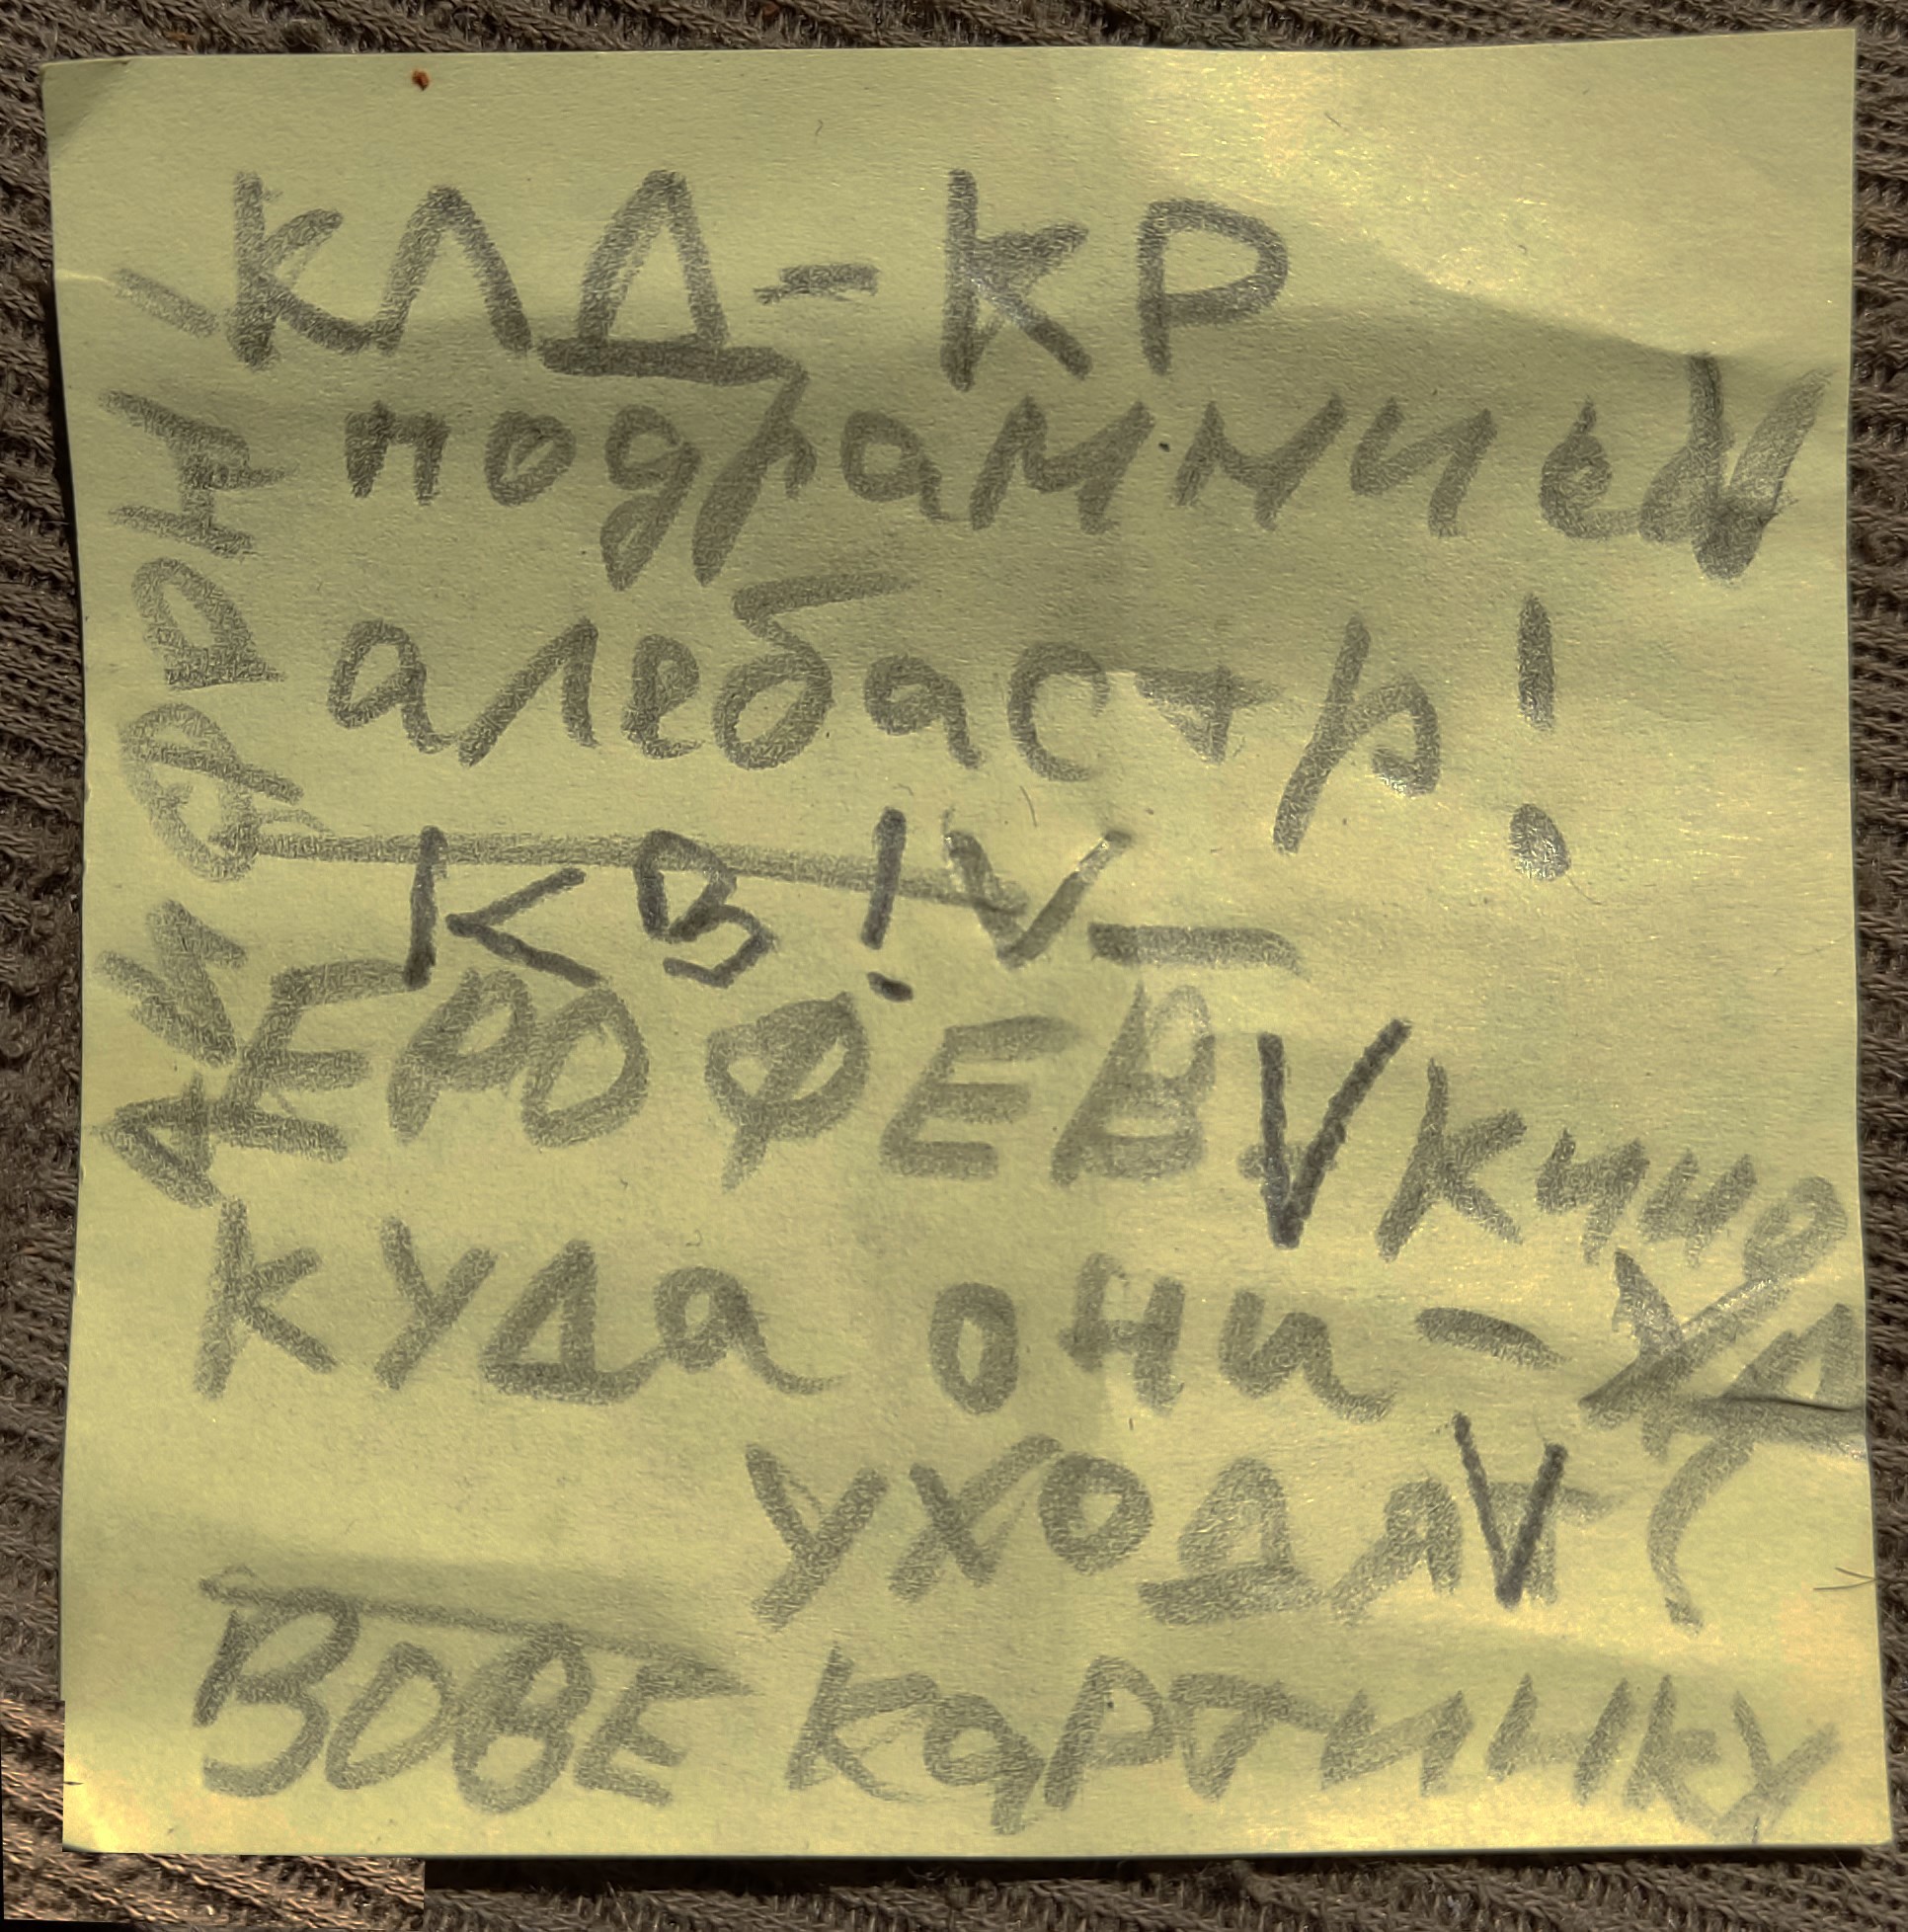 КЛД-КР
подрамние V
алебастр!
КВ! V_
ЕРОФЕВ. V КИНО
КУДА ОНИ -
УХОДЯТ V
ВОВЕ КАРТИНКУ